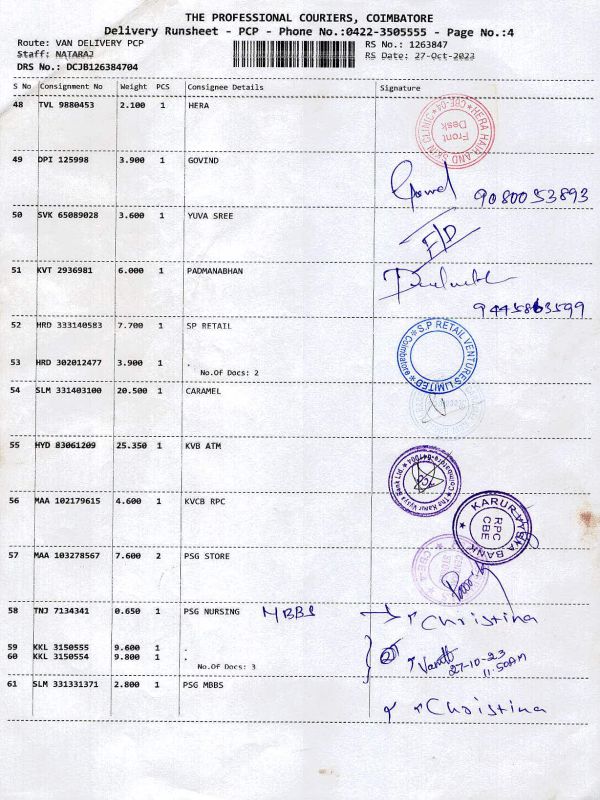 THE PROFESSIONAL COURIERS, COIMBATORE
Delivery Runsheet - PCP - Phone No.:0422-3505555 - Page No.:4
Route: VAN DELIVERY PCP
RS No.: 1263847
Staff: NATARAJ
RS Date: 27-Oct-2023
DRS No.: DCJB126384704
S No Consignment No Weight PCS Consignee Details Signature
48 TVL 9880453 2.100 1 HERA
HERA HAIR AND SKIN CLINIC * CBE-04 *
Front
Desk
49 DPI 125998 3.900 1 GOVIND
9080053893
50 SVK 65089028 3.600 1 YUVA SREE
F/D
51 KVT 2936981 6.000 1 PADMANABHAN
52 HRD 333140583 7.700 1 SP RETAIL
S.P RETAIL VENTURES LIMITED * Coimbatore *
53 HRD 302012477 3.900 1 .
No.Of Docs: 2
54 SLM 331403100 20.500 1 CARAMEL
55 HYD 83061209 25.350 1 KVB ATM
56 MAA 102179615 4.600 1 KVCB RPC
KARUR VYSYA BANK
RPC
CBE
57 MAA 103278567 7.600 2 PSG STORE
58 TNJ 7134341 0.650 1 PSG NURSING MBBS
Christina
59 KKL 3150555 9.600 1 .
60 KKL 3150554 9.800 1 .
27-10-23
11.50AM
No.Of Docs: 3
61 SLM 331331371 2.800 1 PSG MBBS
Christina